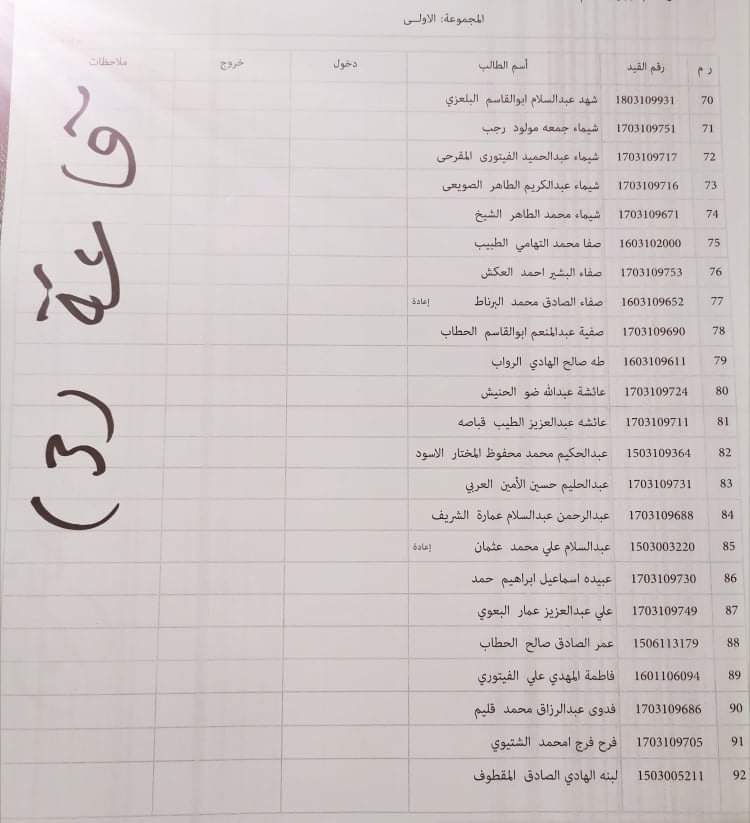 المجموعة: الاولى
ر م رقم القيد أسم الطالب دخول خروج ملاحظات
70 1803109931 شهد عبدالسلام ابوالقاسم البلعزي
71 1703109751 شيماء جمعه مولود رجب
72 1703109717 شيماء عبدالحميد الفيتورى المقرحى
73 1703109716 شيماء عبدالكريم الطاهر الصويعى
74 1703109671 شيماء محمد الطاهر الشيخ
75 1603102000 صفا محمد التهامي الطبيب
76 1703109753 صفاء البشير احمد العكش
77 1603109652 صفاء الصادق محمد البرناط إعادة
78 1703109690 صفية عبدالمنعم ابوالقاسم الحطاب
79 1603109611 طه صالح الهادي الرواب
80 1703109724 عائشة عبدالله ضو الحنيش
81 1703109711 عائشه عبدالعزيز الطيب قباصه
82 1503109364 عبدالحكيم محمد محفوظ المختار الاسود
83 1703109731 عبدالحليم حسين الأمين العربي
84 1703109688 عبدالرحمن عبدالسلام عمارة الشريف
85 1503003220 عبدالسلام علي محمد عثمان إعادة
86 1703109730 عبيده اسماعيل ابراهيم حمد
87 1703109749 علي عبدالعزيز عمار البعوي
88 1506113179 عمر الصادق صالح الحطاب
89 1601106094 فاطمة المهدي علي الفيتوري
90 1703109686 فدوى عبدالرزاق محمد قليم
91 1703109705 فرح فرج امحمد الشتيوي
92 1503005211 لبنه الهادي الصادق المقطوف